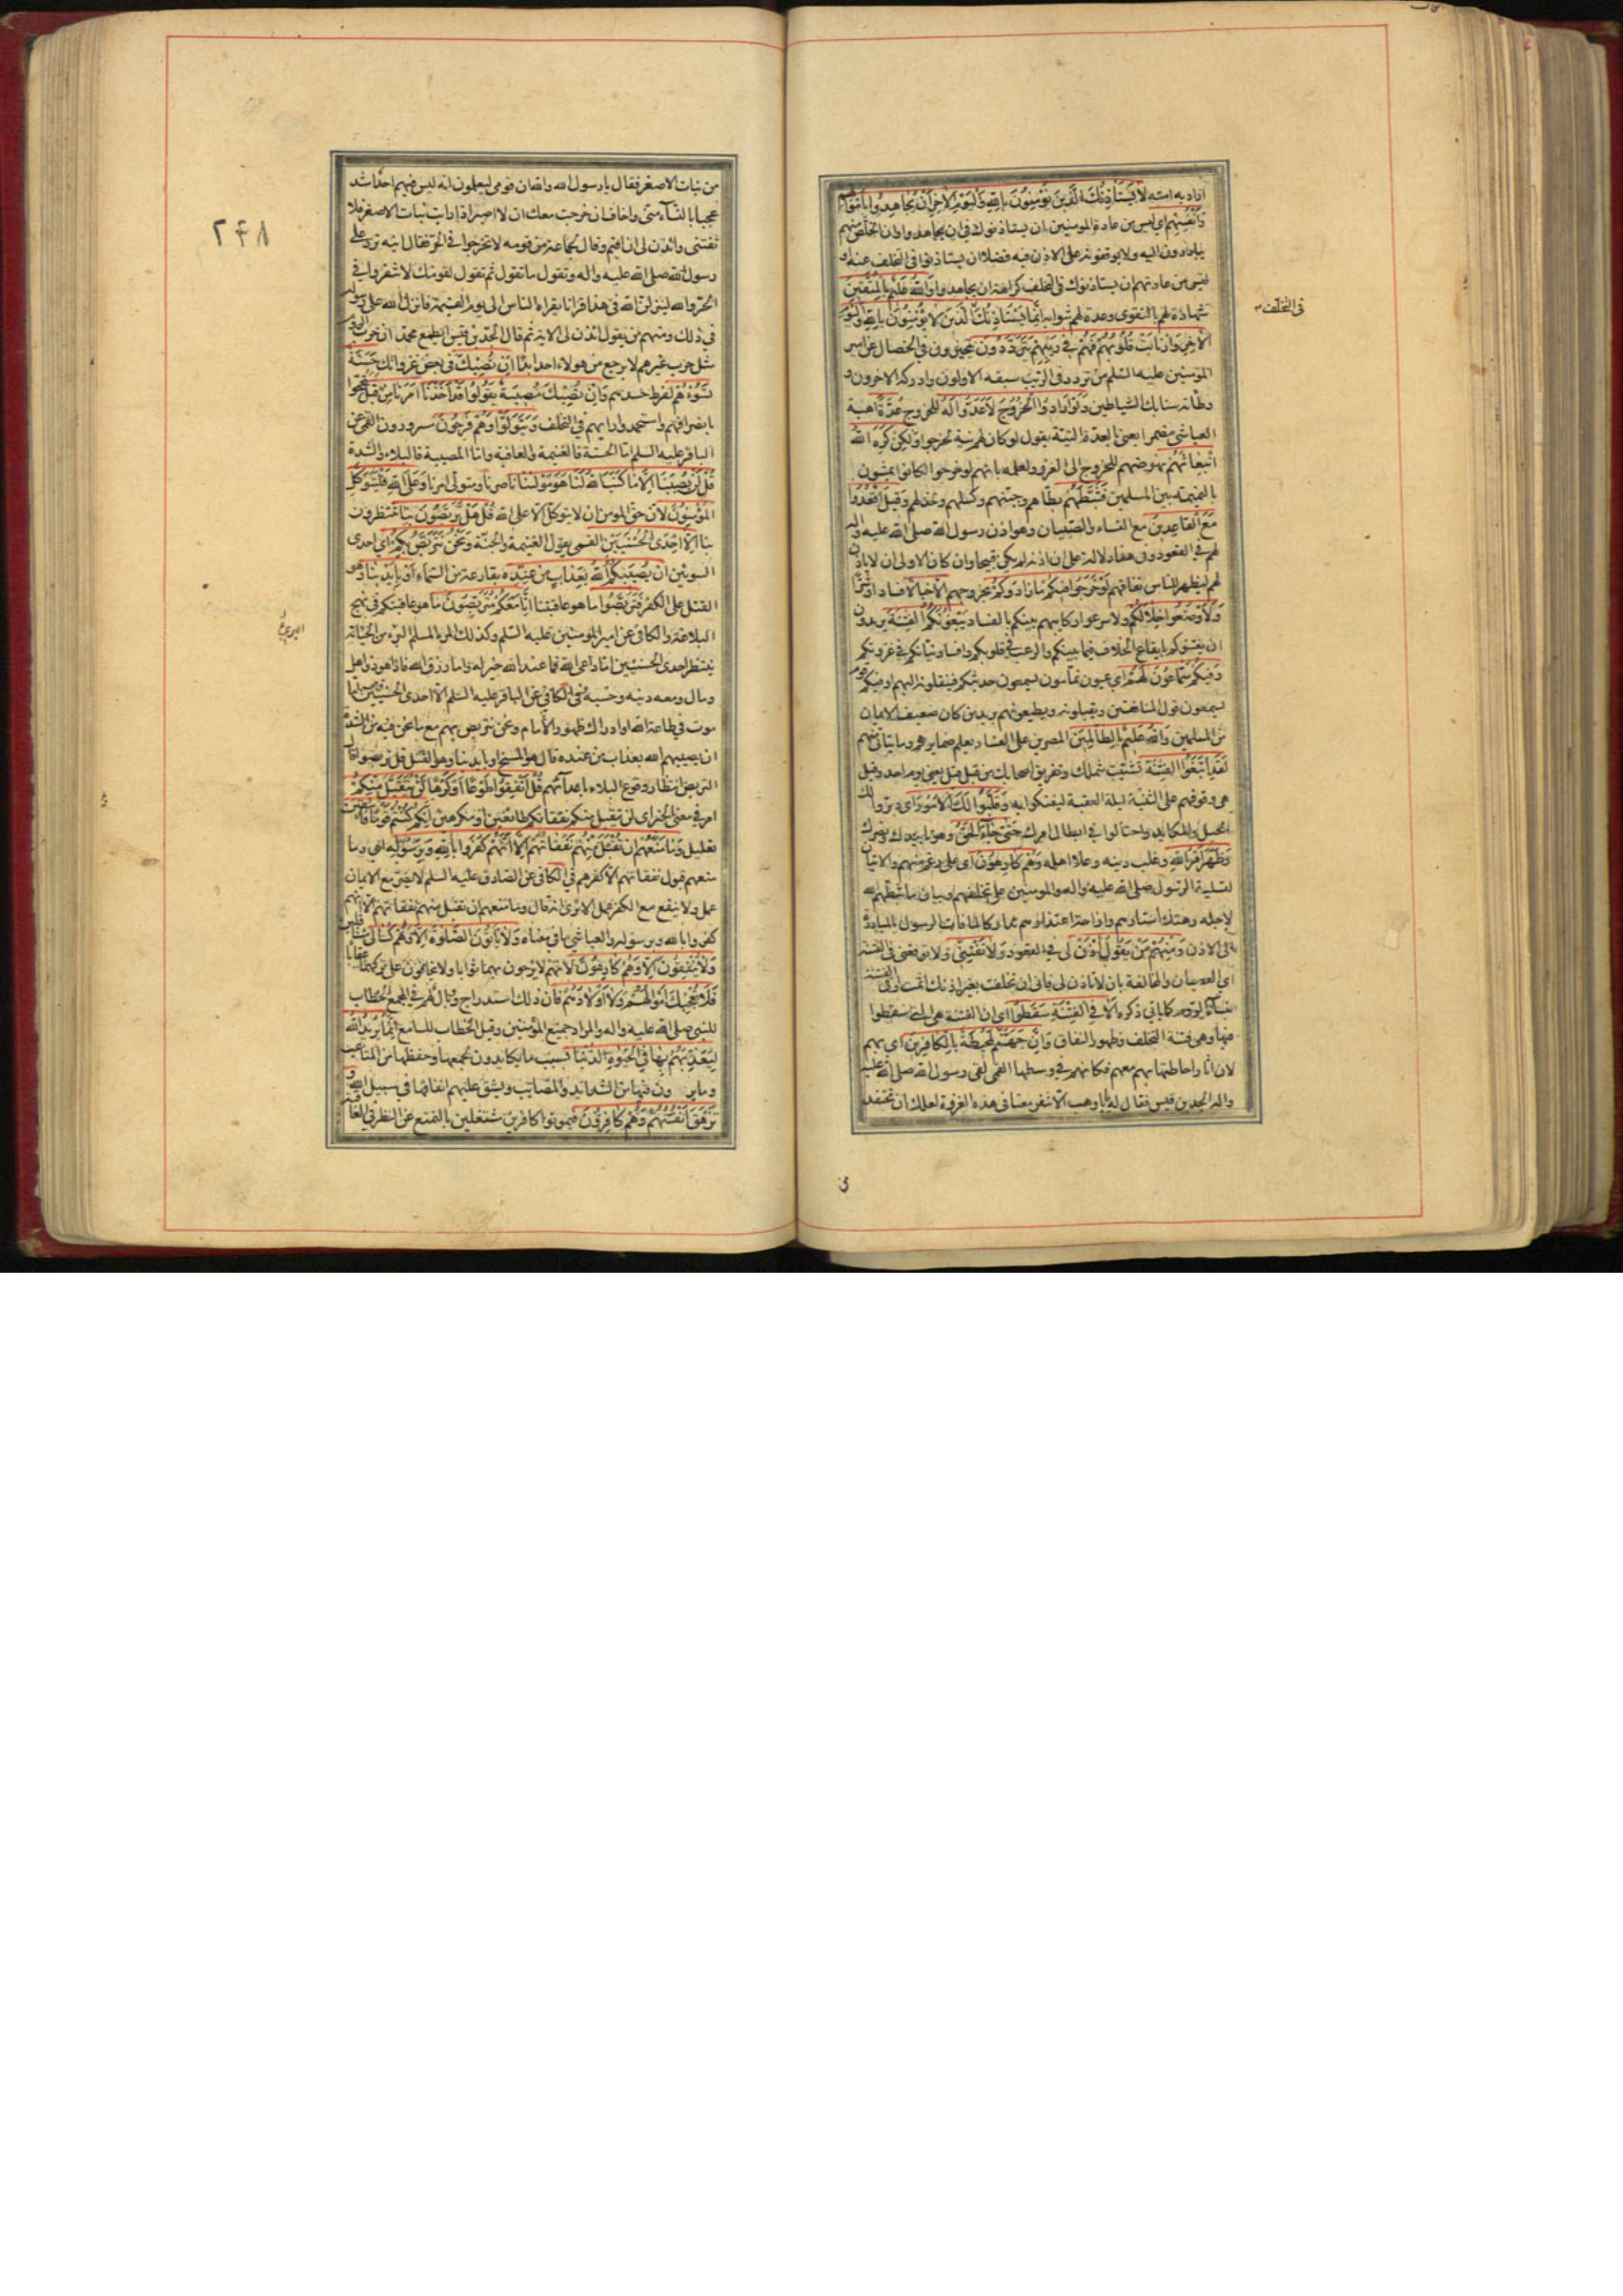 اراد به امته لا يستأذنك الذين يؤمنون بالله واليوم الآخر ان يجاهدوا باموالهم
وانفسهم اي ليس من عادة المومنين ان يستاذنوك في ان يجاهدوا وان الخلص منهم
يبادرون اليه ولا يوقفونه على الاذن فيه فضلا ان يستاذنوا في التخلف عنه او
ليس من عادتهم ان يستاذنوك في التخلف كراهة ان يجاهدوا والله عليم بالمتقين
في التخلف
شهادة لهم بالتقوى وعدة لهم بثوابه انما يستاذنك الذين لا يؤمنون بالله واليوم
الآخر وارتابت قلوبهم فهم في ريبهم يترددون يتحيرون في الخصال عن امير
المؤمنين عليه السلم من تردد في الريب سبقه الاولون وادركه الآخرون و
وطئته سنابك الشياطين ولو ارادوا الخروج لاعدوا له للخروج عدة اهبة
العياشي مضمرا يعني بالعدة النية يقول لو كان لهم نية لخرجوا ولكن كره الله
انبعاثهم نهوضهم للخروج الى الغزو لعلمه بانهم لو خرجوا لكانوا يمشون
بالنميمة بين المسلمين فثبطهم بطأهم وجبنهم وكسلهم وخذلهم وقيل اقعدوا
مع القاعدين مع النساء والصبيان وهو اذن رسول الله صلى الله عليه واله
لهم في القعود وفي هذا دلالة على ان اذنه لم يكن قبيحا وان كان الاولى ان لا ياذن
لهم ليظهر للناس نفاقهم لو خرجوا فيكم ما زادوكم بخروجهم الا خبالا فسادا وشرا
ولاوضعوا خلالكم ولاسرعوا ركايبهم بينكم بالفساد يبغونكم الفتنة يريدون
ان يفتنوكم بايقاع الخلاف فيما بينكم والرعب في قلوبكم وافساد نياتكم في غزوتكم
وفيكم سماعون لهم اي عيون نمامون يسمعون حديثكم فينقلونه اليهم او فيكم قوم
يسمعون قول المنافقين ويقبلونه ويطيعونهم يريد من كان ضعيف الايمان
من المسلمين والله عليم بالظالمين المصرين على الفساد يعلم ضمايرهم وما يتاتى منهم
لقد ابتغوا الفتنة تشتيت شملك وتفريق اصحابك من قبل قبل يعني يوم احد وقيل
هي وقوفهم على الثنية ليلة العقبة ليفتكوا به وقلبوا لك الامور اي دبروا لك
الحيل والمكايد واحتالوا في ابطال امرك حتى جاء الحق وهو تاييدك ونصرك
وظهر امر الله وغلب دينه وعلا اهله وهم كارهون اى على رغم منهم والايتان
لتسلية الرسول صلى الله عليه واله والمومنين على تخلفهم وبيان ما ثبطهم الله
لاجله وهتك استارهم وازاحة اعتذارهم تداركا لما فات الرسول بالمبادرة
الى الاذن ومنهم من يقول ائذن لي في القعود ولا تفتني ولا توقعني في الفتنة
اي العصيان والمخالفة بان لا تاذن لي فاني ان تخلفت بغير اذنك اثمت او في الفتنة
بنساء الروم كما ياتي ذكره الا في الفتنة سقطوا اى ان الفتنة هي التي سقطوا
فيها وهي فتنة التخلف وظهور النفاق وان جهنم لمحيطة بالكافرين اي بهم
لان اثار احاطتها بهم معهم فكانهم في وسطها القمي لقى رسول الله صلى الله عليه
واله الجد بن قيس فقال له يا ابا وهب الا تنفر معنا في هذه الغزوة لعلك ان تحتفد
٢٤٨
من بنات الاصفر فقال يا رسول الله والله ان قومي ليعلمون انه ليس فيهم احد اشد
عجبا بالنساء مني واخاف ان خرجت معك ان لا اصبر اذا رايت بنات الاصفر فلا
تفتني وائذن لي ان اقيم وقال لجماعة من قومه لا تخرجوا في الحر فقال ابنه ترد على
رسول الله صلى الله عليه واله وتقول ما تقول ثم تقول لقومك لا تنفروا في
الحر والله لينزلن الله في هذا قرانا يقراه الناس الى يوم القيمة فانزل الله على رسوله
في ذلك ومنهم من يقول ائذن لي الاية ثم قال الجد بن قيس ايطمع محمد ان حرب الروم
مثل حرب غيرهم لا يرجع من هولاء احد ابدا ان تصبك في بعض غزواتك حسنة
تسؤهم لفرط حسدهم وان تصبك مصيبة يقولوا قد اخذنا امرنا من قبل تبجحوا
بانصرافهم واستحمدوا رايهم في التخلف ويتولوا وهم فرحون مسرورون القمي عن
الباقر عليه السلم اما الحسنة فالغنيمة والعافية واما المصيبة فالبلاء والشدة
قل لن يصيبنا الا ما كتب الله لنا هو مولينا ناصرنا ومتولى امرنا وعلى الله فليتوكل
المؤمنون لان حق المومن ان لا يتوكل الا على الله قل هل تربصون بنا تنتظرون
بنا الا احدى الحسنيين القمي يقول الغنيمة والجنة ونحن نتربص بكم اي احدى
السوئين ان يصيبكم الله بعذاب من عنده بقارعة من السماء او بايدينا وهو
القتل على الكفر فتربصوا ما هو عاقبتنا انا معكم متربصون ما هو عاقبتكم في نهج
البلاغة والكافي عن امير المومنين عليه السلم وكذلك المرء المسلم البرىء من الخيانة
ينتظر احدى الحسنيين اما داعى الله فما عند الله خير له واما رزق الله فاذا هو ذو اهل
ومال ومعه دينه وحسبه في الكافي عن الباقر عليه السلم الا احدى الحسنيين اما
موت في طاعة الله او ادراك ظهور الامام ونحن نتربص بهم مع ما نحن فيه من الشدة
ان يصيبهم الله بعذاب من عنده قال هو المسخ او بايدينا وهو القتل قل تربصوا قال
التربص انتظار وقوع البلاء باعدائهم قل انفقوا طوعا او كرها لن يتقبل منكم
امر في معنى الخبر اى لن يتقبل منكم نفقاتكم طائعين او مكرهين انكم كنتم قوما فاسقين
تعليل وما منعهم ان تقبل منهم نفقاتهم الا انهم كفروا بالله وبرسوله اي وما
منعهم قبول نفقاتهم الا كفرهم في الكافي عن الصادق عليه السلم لا يضر مع الايمان
عمل ولا ينفع مع الكفر عمل الا ترى انه قال وما منعهم ان تقبل منهم نفقاتهم الا انهم
كفروا بالله وبرسوله والعياشي ما في معناه ولا ياتون الصلوة الا وهم كسالى متثاقلين
ولا ينفقون الا وهم كارهون لانهم لا يرجون بهما ثوابا ولا يخافون على تركهما عقابا
فلا تعجبك اموالهم ولا اولادهم فان ذلك استدراج ووبال لهم في المجمع الخطاب
للنبي صلى الله عليه واله والمراد جميع المؤمنين وقيل الخطاب للسامع انما يريد الله
ليعذبهم بها في الحيوة الدنيا بسبب ما يكابدون لجمعها وحفظها من المتاعب
وما يرون فيها من الشدائد والمصائب ويشق عليهم انفاقها في سبيل الله و
تزهق انفسهم وهم كافرون فيموتوا كافرين مشتغلين بالتمتع عن النظر في العاقبة